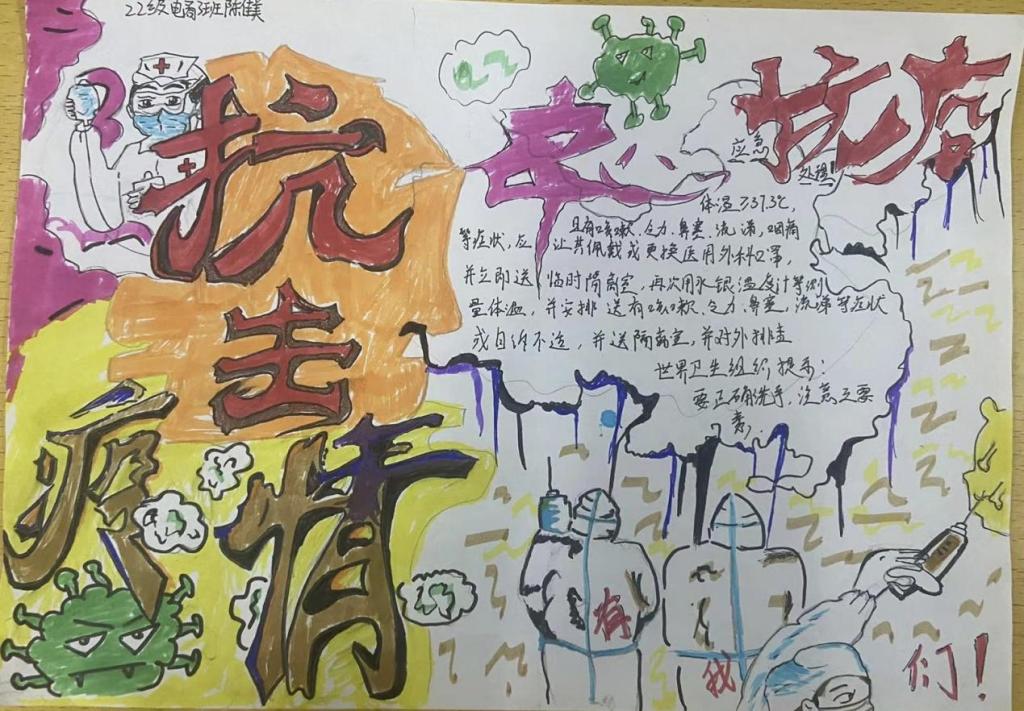 22级电商班陈佳美
抗击
疫情
众志
抗疫
应急
处理
体温≥37.3℃,
且有咳嗽、乏力、鼻塞、流涕、咽痛
等症状, 应让其佩戴或更换医用外科口罩,
并立即送临时隔离室, 再次用水银温度计等测
量体温, 并安排送有咳嗽、乏力、鼻塞、流涕等症状
或自诉不适, 并送隔离室, 并对外排查
世界卫生组织提示:
要正确洗手, 注意
有
我
们!